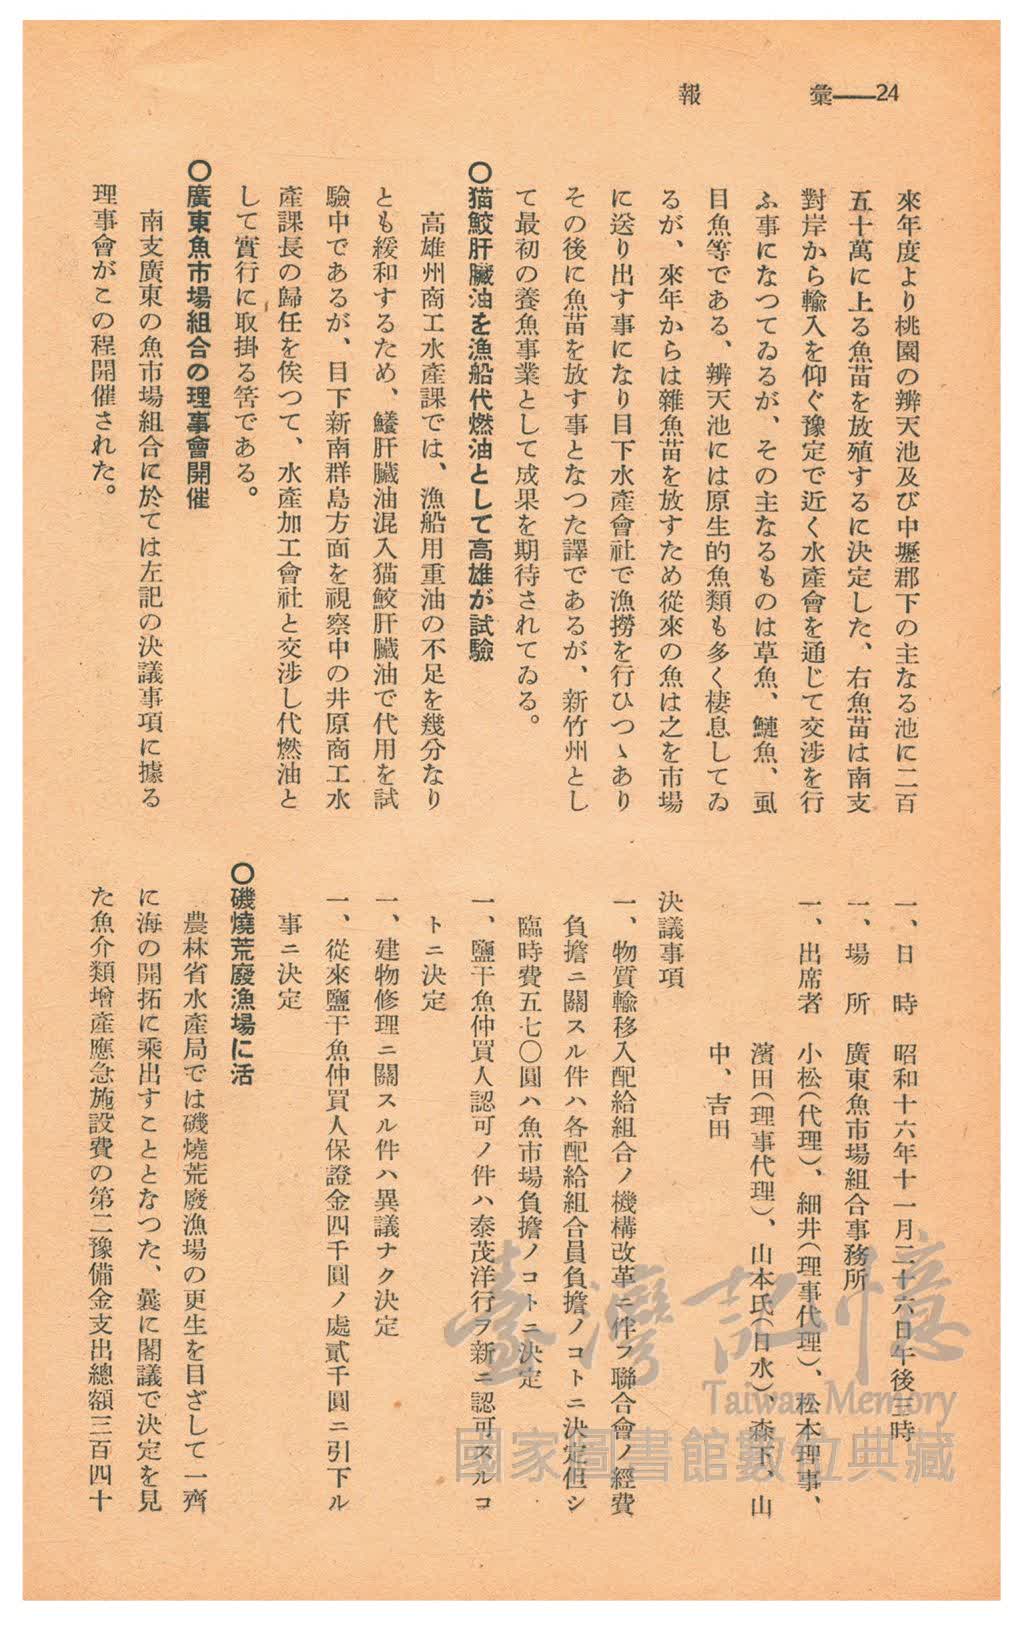 彙報——24
來年度より桃園の辨天池及び中壢郡下の主なる池に二百
五十萬に上る魚苗を放殖するに決定した、右魚苗は南支
對岸から輸入を仰ぐ豫定で近く水產會を通じて交涉を行
ふ事になつてゐるが、その主なるものは草魚、鰱魚、虱
目魚等である、辨天池には原生的魚類も多く棲息してゐ
るが、來年からは雜魚苗を放すため從來の魚は之を市場
に送り出す事になり目下水產會社で漁撈を行ひつゝあり
その後に魚苗を放す事となつた譯であるが、新竹州とし
て最初の養魚事業として成果を期待されてゐる。
〇猫鮫肝臟油を漁船代燃油として高雄が試驗
高雄州商工水產課では、漁船用重油の不足を幾分なり
とも緩和するため、鱶肝臟油混入猫鮫肝臟油で代用を試
驗中であるが、目下新南群島方面を視察中の井原商工水
產課長の歸任を俟つて、水產加工會社と交涉し代燃油と
して實行に取掛る筈である。
〇廣東魚市場組合の理事會開催
南支廣東の魚市場組合に於ては左記の決議事項に據る
理事會がこの程開催された。
一、日　時　昭和十六年十一月二十六日午後三時
一、場　所　廣東魚市場組合事務所
一、出席者　小松(代理)、細井(理事代理)、松本理事、
濱田(理事代理)、山本氏(日水)、森下、山
中、吉田
決議事項
一、物質輸移入配給組合ノ機構改革ニ伴フ聯合會ノ經費
負擔ニ關スル件ハ各配給組合員負擔ノコトニ決定但シ
臨時費五七〇圓ハ魚市場負擔ノコトニ決定
一、鹽干魚仲買人認可ノ件ハ泰茂洋行ヲ新ニ認可スルコ
トニ決定
一、建物修理ニ關スル件ハ異議ナク決定
一、從來鹽干魚仲買人保證金四千圓ノ處貳千圓ニ引下ル
事ニ決定
〇磯燒荒廢漁場に活
農林省水產局では磯燒荒廢漁場の更生を目ざして一齊
に海の開拓に乘出すこととなつた、曩に閣議で決定を見
た魚介類增產應急施設費の第二豫備金支出總額三百四十
臺灣記憶
Taiwan Memory
國家圖書館數位典藏